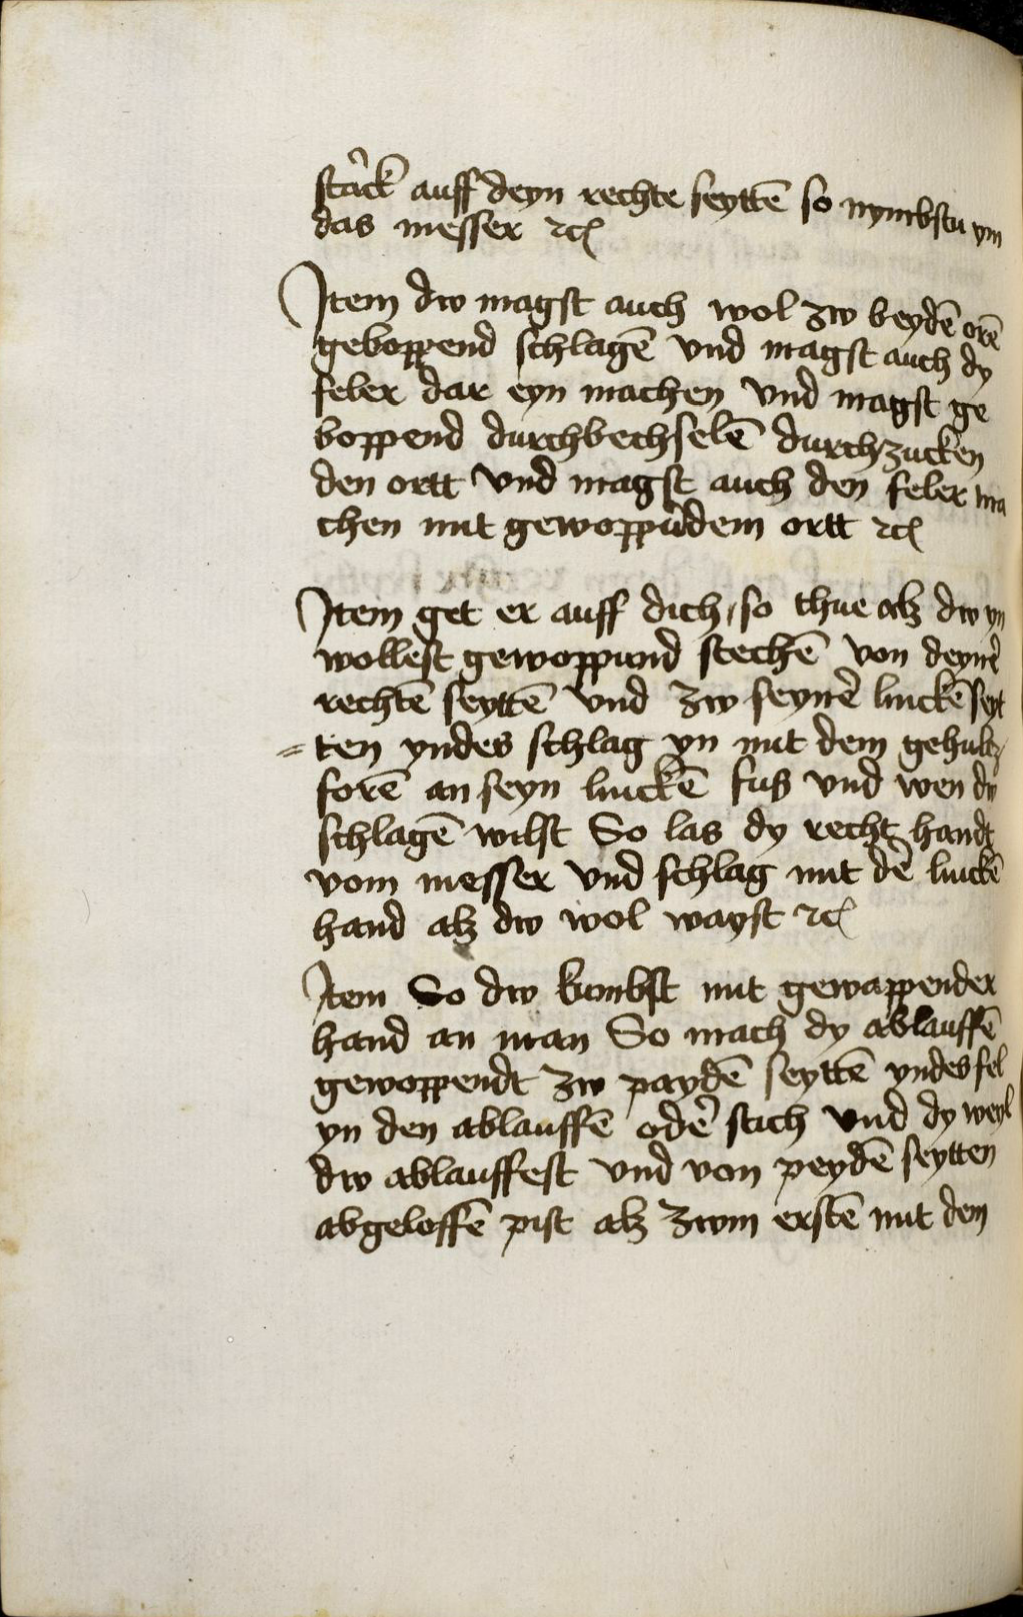 stuck auff deyn rechte seyttē so nymbstu ym
das messer ⁊c̄
Item dw magst auch wol zw beydē orē
geboppend schlagē vnd magst auch dy
feler dar eyn machen vnd magst ge
boppend durchbechselē durchzucken
den ortt vnd magst auch den feler ma
chen mit gewoppūdem ortt ⁊c̄
Item get er auff dich so thue alz dw yn
wollest gewoppund stechē von deynē
rechtē seyttē vnd zw seynē linckē seyt
ten yndes schlag yn mit dem gehultz
forē an seyn linckē fuß vnd wen dw
schlagē wilst So las dy recht handt
vom messer vnd schlag mit dē linckē
hand alz dw wol wayst ⁊c̄
Item So dw kumbst mit gewappender
hand an man So mach dy ablauffē
gewoppendt zw paydē seyttē yndes fel
yn den ablauffē odē stich vnd dy weyl
dw ablauffest vnd von peydē seytten
abgeloffē pist alz zwm erstē mit dem